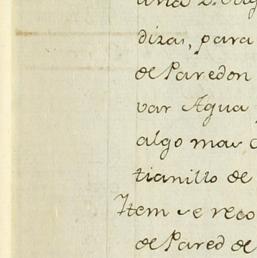 dizas, para
de Paredon
var Agua
algo mas
tianillo de
Item se reco
de Pared de